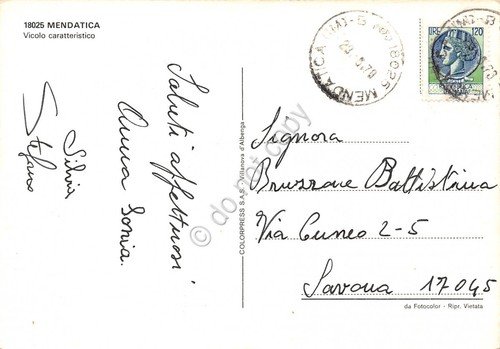 18025 MENDATICA
Vicolo caratteristico
Saluti affettuosi
Anna Sonia.
Silvia
Stefano
COLORPRESS S.A.S. - Villanova d'Albenga
18025 MENDATICA
LIRE 120
Signora
Bruzzone Battistina
Via Cuneo 2-5
Savona 17045
da Fotocolor - Ripr. Vietata
do not copy